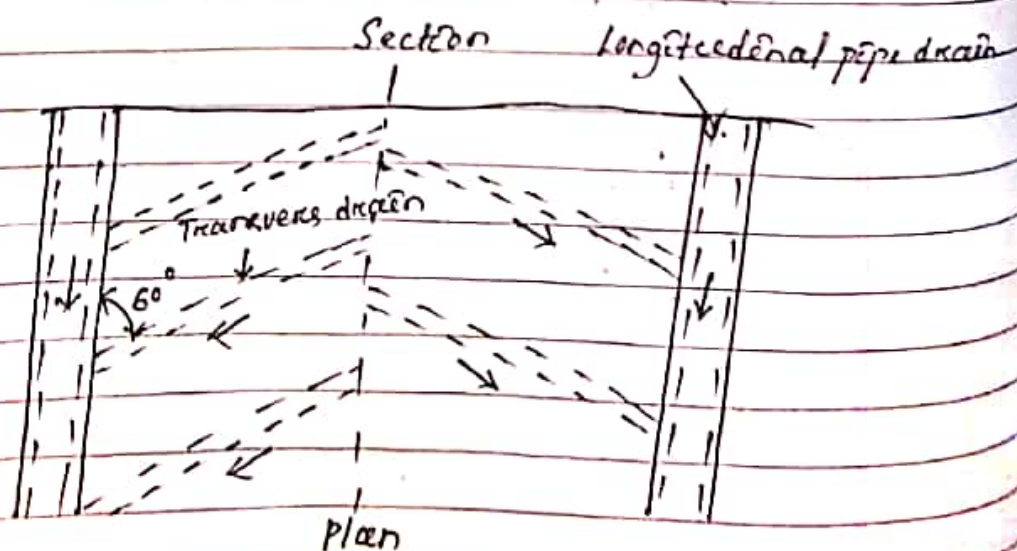 Section
Longiteedinal pipe drain
Tranvers drain
60°
plan